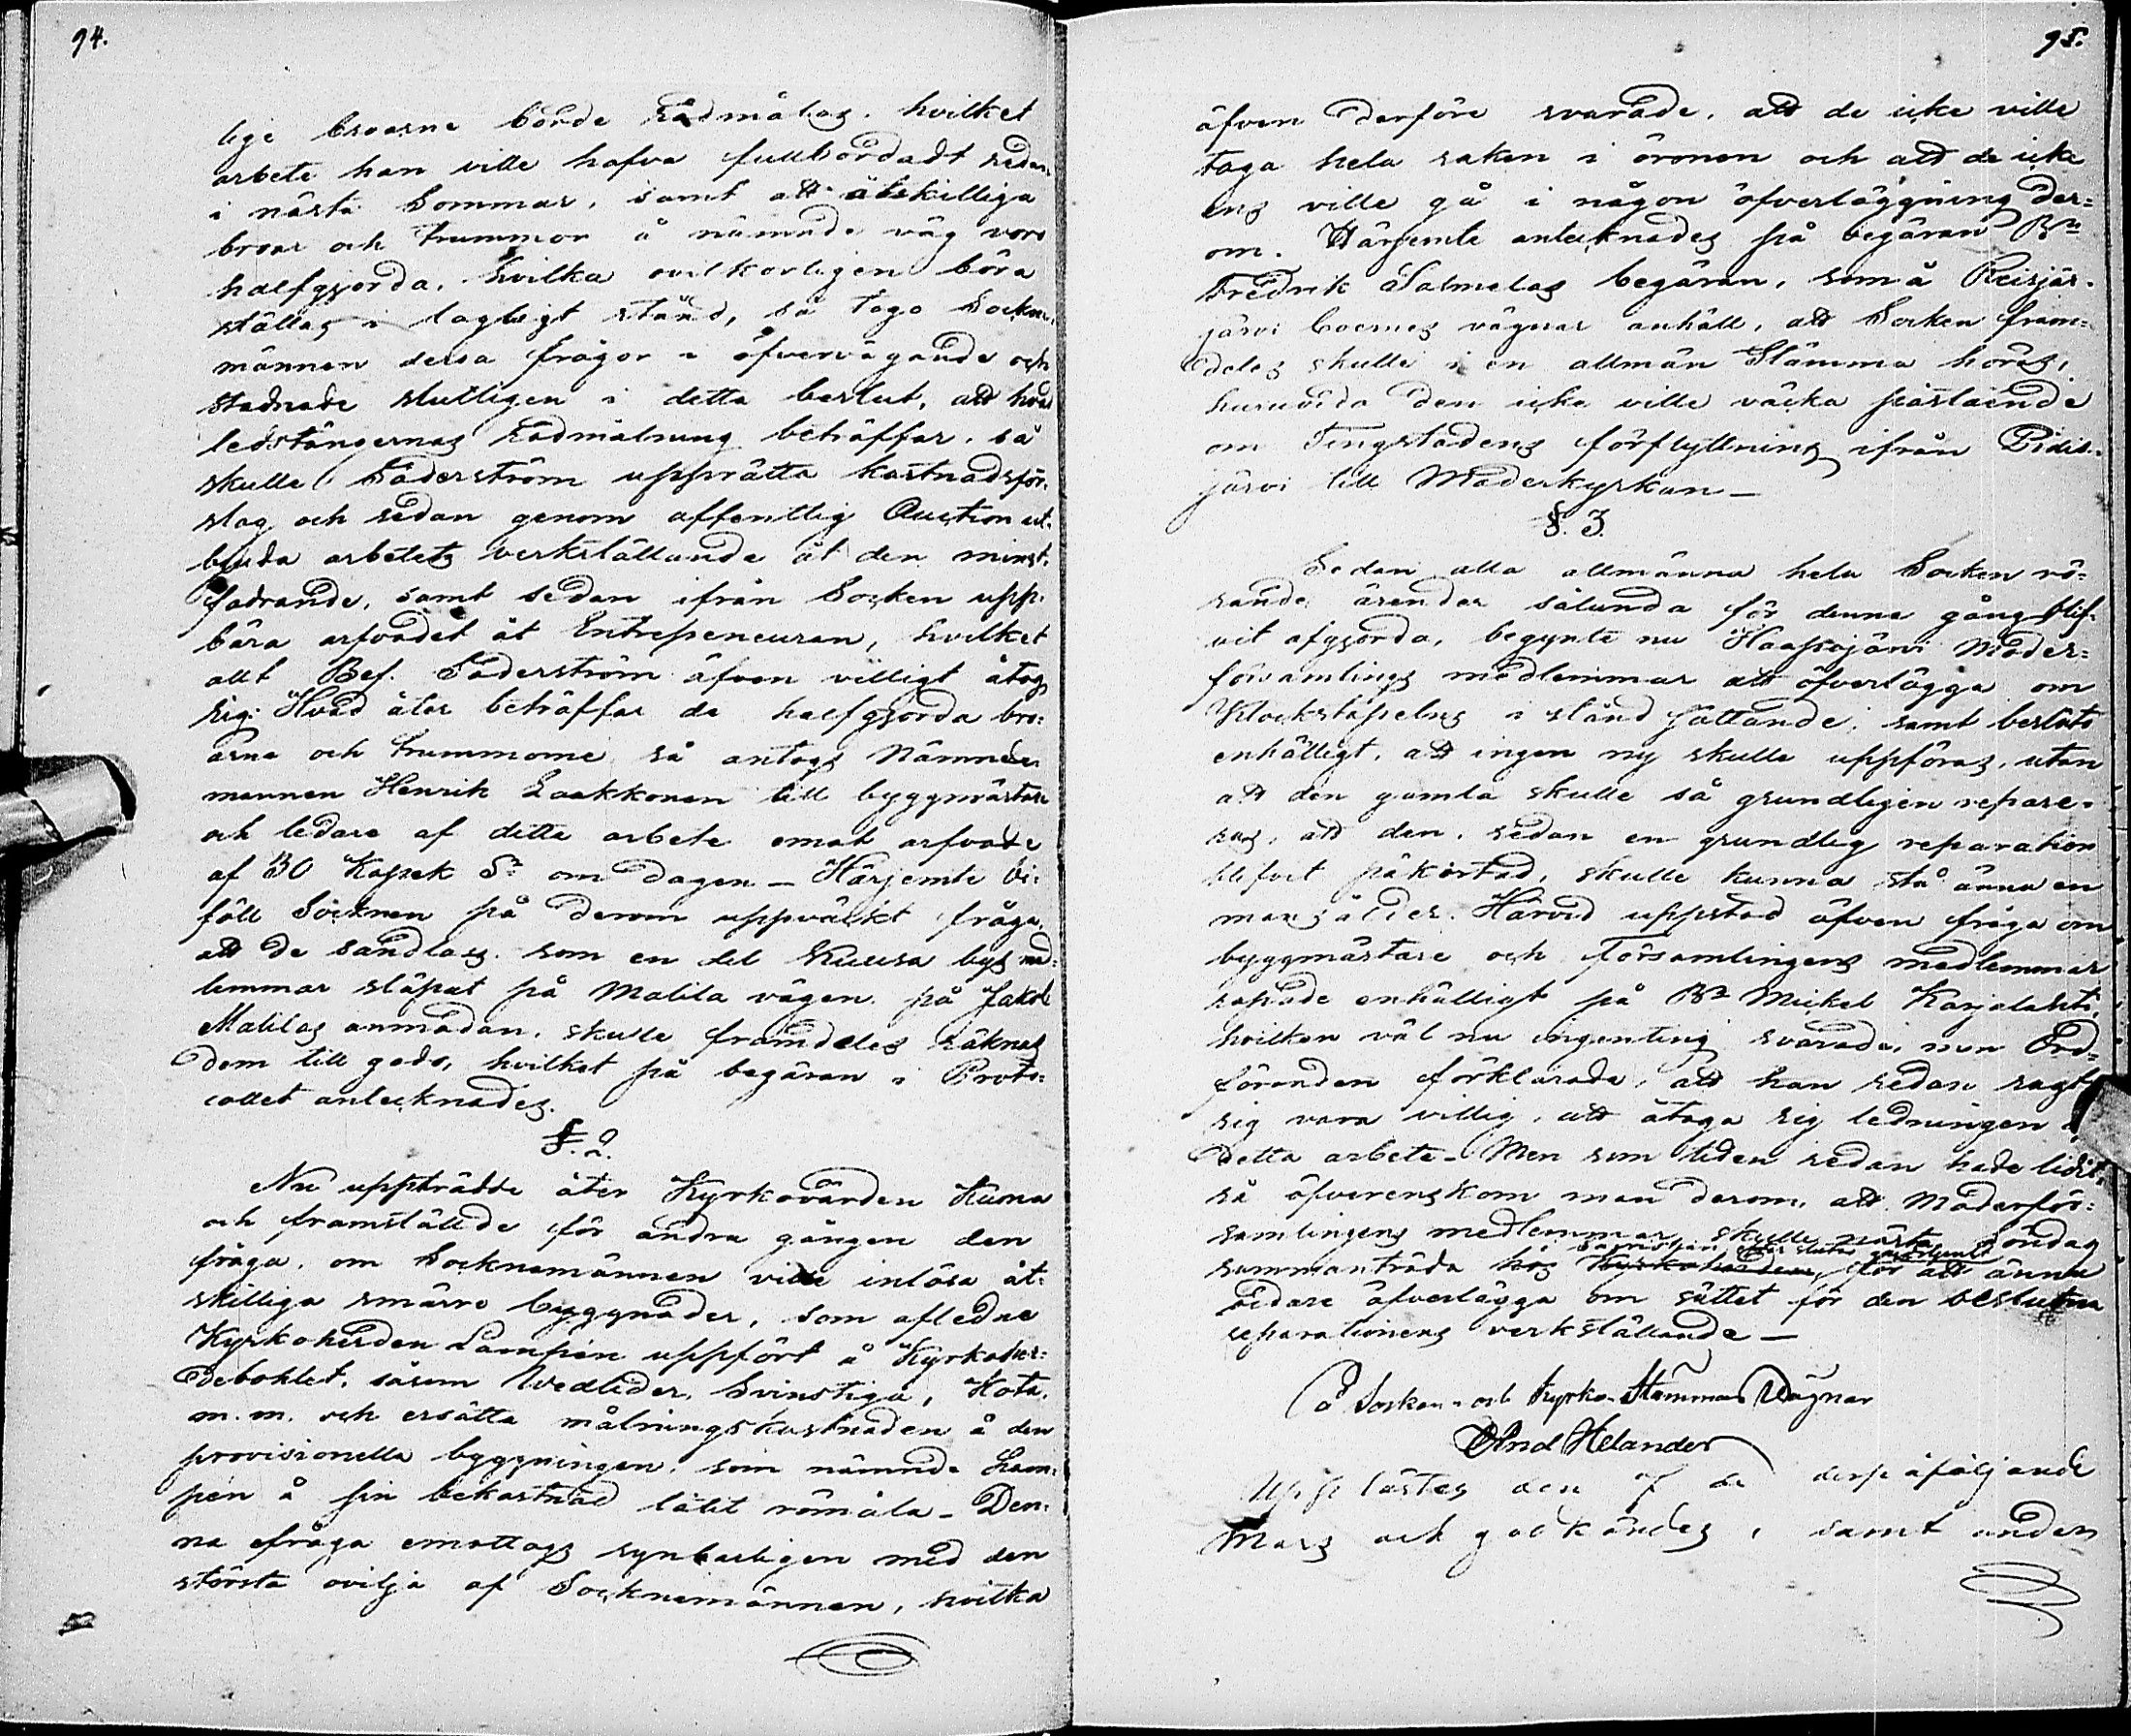 94.
lige broarne borde rödmålas. hvilket
arbete han ville hafva fullbordadt redan
i nästa Sommar, samt att åtskilliga
broar och trummor å nämnde väg voro
halfgjorda, hvilka ovilkorligen böra
ställas i lagligt stånd, så togo Sockne-
männen dessa frågor i öfvervägande och
stadnade slutligen i detta beslut, att hvad
ledstängernas rödmålning beträffar, så
skulle Söderström upprätta kostnadsför-
slag och sedan genom offentlig Auction ut-
bjuda arbetets verkställande åt den minst-
fodrande, samt sedan ifrån Socken upp-
bära arfvodet åt Entrepeneuren, hvilket
allt Bef. Söderström äfven villigt åtog
sig. Hvad åter beträffar de halfgjorda bro-
arne och trummorne så antogs Nämnde-
mannen Henrik Laakkonen till byggmästare
och ledare af detta arbete emot arfvode
af 30 Kopek Sr om dagen — Härjemte bi-
föll Socknen på derom uppväckt fråga,
att de sandlass som en del Kuusa bys med-
lemmar släpat på Malila vägen på Jakob
Malilas anmodan, skulle framdeles räknas
dem till godo, hvilket på begäran i Proto-
collet antecknades.
§. 2.
Nu uppträdde åter Kyrkovärden Kuona
och framställde för andra gången den
fråga, om Socknemännen ville inlösa åt-
skilliga smärre byggnader, som aflidne
Kyrkoherden Lampén uppfört å Kyrkoher-
debohlet, såsom Wedlider, Svinstiga, Kota,
m. m. och ersätta målningskostnaden å den
provisionella byggningen, som nämnde Lam-
pén å sin bekostnad låtit römåla — Den-
na fråga emottogs synbarligen med den
största ovilja af Socknemännen, hvilka
95.
äfven derföre svarade, att de icke ville
taga hela saken i öronen och att de icke
ens ville gå i någon öfverläggning der-
om. Härjemte antecknades på begäran Bn
Fredrik Salmelas begäran, som å Reisjär-
järvi boernes vägnar anhöll, att Socken fram-
deles skulle i en allmän Stämma höras,
huruvida den icke ville väcka påstående
om Tingstadens förflyttning ifrån Pidis-
järvi till Moderkyrkan —
§. 3.
Sedan alla allmänna hela Socken rö-
rande ärender sålunda för denna gång blif-
vit afgjorda, begynte nu Haapajärvi Moder-
församlings medlemmar att öfverlägga om
Klockstapelns i stånd sättande, samt besluto
enhälligt, att ingen ny skulle uppföras, utan
att den gamla skulle så grundligen repare-
ras, att den, sedan en grundlig reparation
blifvit påkostad, skulle kunna stå ännu en
mansålder. Härvid uppstod äfven fråga om
byggmästare och Församlingens medlemmar
ropade enhälligt på Bn Mickel Karjalahti,
hvilken väl nu ingenting svarade, men Ord-
föranden förklarade, att han redan sagt
sig vara villig, att åtaga sig ledningen a
detta arbete — Men som tiden redan hade lidit,
så öfverenskom man derom, att Moderför-
samlingens medlemmar skulle nästa Söndag
Sacristian efter slutad gudstjenst
sammanträda hos Kyrkoherden, för att ännu
vidare öfverlägga om sättet för den beslutna
reparationens verkställande —
På Socken- och Kyrko-Stämmans Vägnar
And Helander
Upplästes den 7 de derpåföljande
Mars och godkändes, samt under